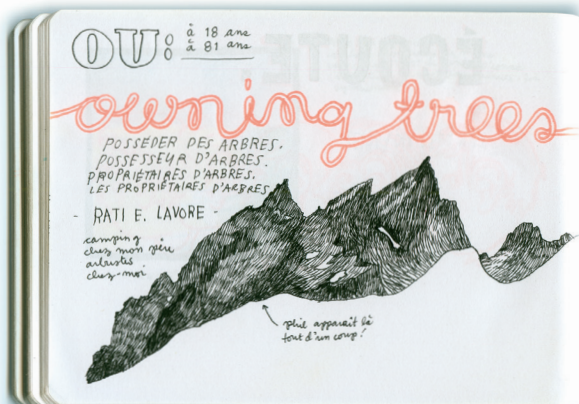 OU:
à 18 ans
à 81 ans
owning trees
POSSÉDER DES ARBRES.
POSSESSEUR D'ARBRES.
PROPRIÉTAIRES D'ARBRES.
LES PROPRIÉTAIRES D'ARBRES
- RATI E. LAVORE -
camping
chez mon père
arbustes
chez-moi
phil apparaît là
tout d'un coup!
ÉCOUTE